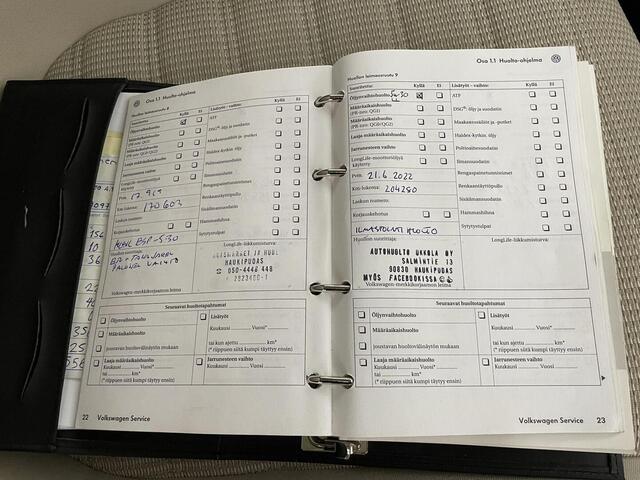 Osa 1.1 Huolto-ohjelma
Huollon leimausruutu 8
Suoritettu: Kyllä Ei
Öljynvaihtohuolto
Määräaikaishuolto
Määräaikaishuolto
Laaja määräaikaishuolto
Jarrunesteen vaihto
LongLife-moottoriöljyä
Pvm. 17.9.19
Km-lukema: 170603
Laskun numero:
Korjauskehotus
Lisätyöt - vaihto: Kyllä Ei
ATF
DSG®: öljy ja suodatin
Haldex-kytkin. öljy
Polttoaineensuodatin
Ilmansuodatin
Rengaspaineentunnistimet
Renkaantäyttöpullo
Sisäilmansuodatin
Hammashihna
Sytytystulpat
LongLife-liikkumisturva:
HAUKIPUDAS
☎ 050-4448 448
Volkswagen-merkkikorjaamon leima
Seuraavat huoltotapahtumat
Öljynvaihtohuolto
Määräaikaishuolto
joustavan huoltovälinäytön mukaan
Laaja määräaikaishuolto
Kuukausi Vuosi
tai km*
(* riippuen siitä kumpi täytyy ensin)
Lisätyöt
Kuukausi Vuosi*
tai kun ajettu km*
(* riippuen siitä kumpi täytyy ensin)
Jarrunesteen vaihto
Kuukausi Vuosi
22 Volkswagen Service
Osa 1.1 Huolto-ohjelma
Huollon leimausruutu 9
Suoritettu: Kyllä Ei
Öljynvaihtohuolto 5w-30
Määräaikaishuolto
(PR-nro: QG1)
Määräaikaishuolto
(PR-nro: QG0/QG2)
Laaja määräaikaishuolto
Jarrunesteen vaihto
LongLife-moottoriöljyä
käytetty
Pvm. 21.6.2022
Km-lukema: 204280
Laskun numero:
Korjauskehotus
Huollon suorittaja:
Lisätyöt - vaihto: Kyllä Ei
ATF
DSG®: öljy ja suodatin
Maakaasusäiliöt ja -putket
Haldex-kytkin. öljy
Polttoaineensuodatin
Ilmansuodatin
Rengaspaineentunnistimet
Renkaantäyttöpullo
Sisäilmansuodatin
Hammashihna
Sytytystulpat
LongLife-liikkumisturva:
AUTOHUOLTO UKKOLA OY
SALMINTIE 13
90830 HAUKIPUDAS
MYÖS FACEBOOKISSA
Volkswagen-merkkikorjaamon leima
Seuraavat huoltotapahtumat
Öljynvaihtohuolto
Määräaikaishuolto
joustavan huoltovälinäytön mukaan
Laaja määräaikaishuolto
Kuukausi Vuosi
tai km*
(* riippuen siitä kumpi täytyy ensin)
Lisätyöt
Kuukausi Vuosi*
tai kun ajettu km*
(* riippuen siitä kumpi täytyy ensin)
Jarrunesteen vaihto
Kuukausi Vuosi
Volkswagen Service 23